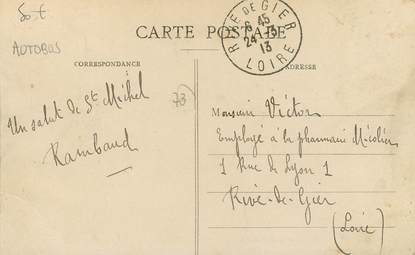 50 €
AUTOBUS
CARTE POSTALE
RIVE DE GIER
6 45
24 - 3
13
LOIRE
CORRESPONDANCE
ADRESSE
73
Un salut de St Michel
Rambaud
Monsieur Victor
Employé à la pharmacie
1 Rue de Lyon 1
Rive-de-Gier
(Loire)